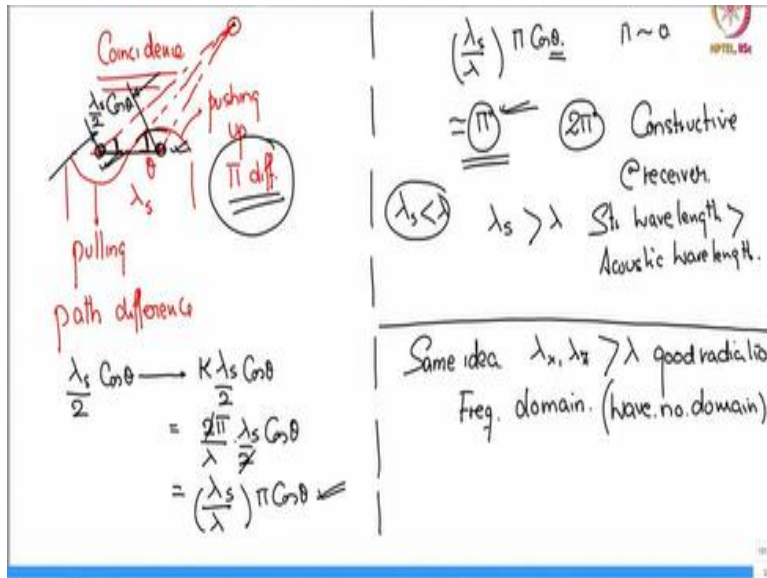 Coincidence
λs/2 Cosθ
θ
λs
pushing
up
π diff.
pulling
path difference
λs/2 Cosθ → K λs/2 Cosθ
= 2π/λ · λs/2 Cosθ
= (λs/λ) π Cosθ
(λs/λ) π Cosθ.
≈ π
2π Constructive
@receiver.
λs < λ λs > λ Str. wavelength >
Acoustic wavelength.
Same idea λx, λz > λ good radiatio
Freq. domain. (wave.no.domain)
NPTEL, IISc